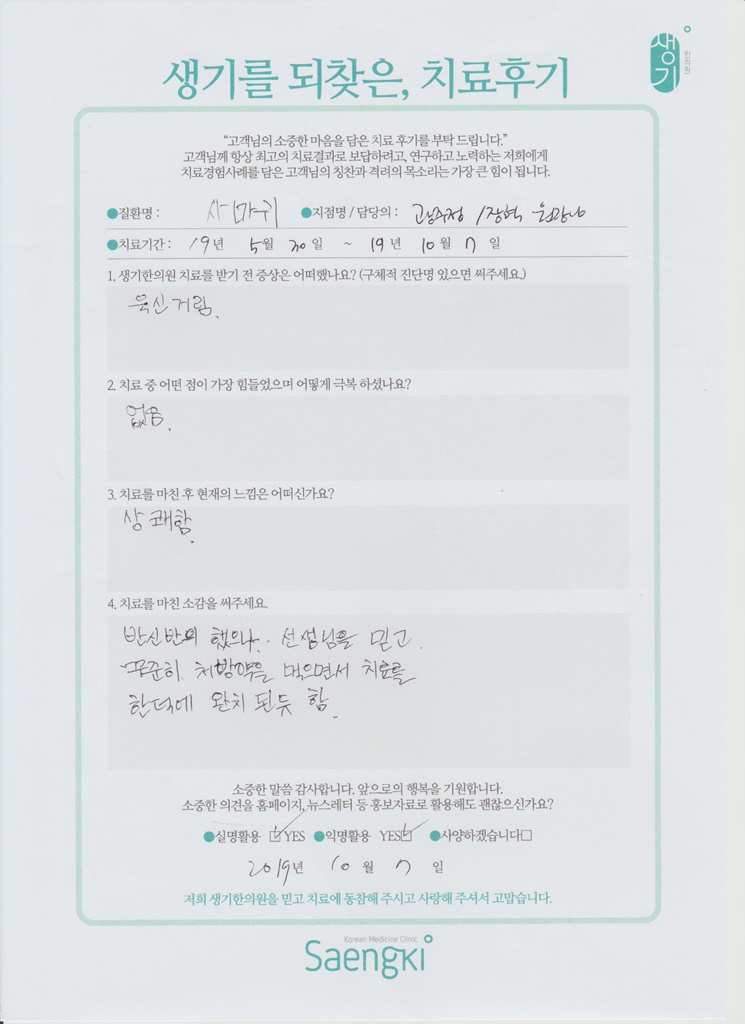 생기를 되찾은, 치료후기
생기
한의원
“고객님의 소중한 마음을 담은 치료 후기를 부탁 드립니다.”
고객님께 항상 최고의 치료결과로 보답하려고, 연구하고 노력하는 저희에게
치료경험사례를 담은 고객님의 칭찬과 격려의 목소리는 가장 큰 힘이 됩니다.
●질환명 : 사마귀 ●지점명 / 담당의 : / 장혁 원장님
●치료기간 : 19년 5월 30일 ~ 19년 10월 7일
1. 생기한의원 치료를 받기 전 증상은 어떠했나요? (구체적 진단명 있으면 써주세요.)
욱신거림.
2. 치료 중 어떤 점이 가장 힘들었으며 어떻게 극복 하셨나요?
없음.
3. 치료를 마친 후 현재의 느낌은 어떠신가요?
상쾌함.
4. 치료를 마친 소감을 써주세요.
반신반의 했으나.. 선생님을 믿고.
꾸준히 처방약을 먹으면서 치료를
한덕에 완치 된듯 함.
소중한 말씀 감사합니다. 앞으로의 행복을 기원합니다.
소중한 의견을 홈페이지, 뉴스레터 등 홍보자료로 활용해도 괜찮으신가요?
●실명활용 ☑YES ●익명활용 YES☑ ●사양하겠습니다□
2019년 10월 7일
저희 생기한의원을 믿고 치료에 동참해 주시고 사랑해 주셔서 고맙습니다.
Korean Medicine Clinic
Saengki